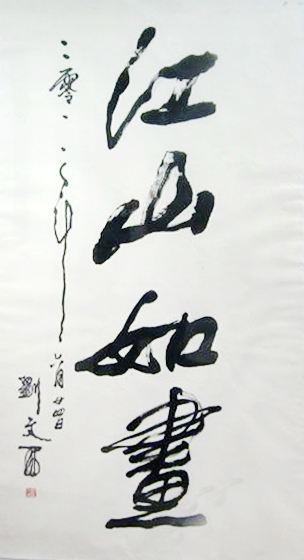 江山如畫
二零一一年六月廿四日
劉文西